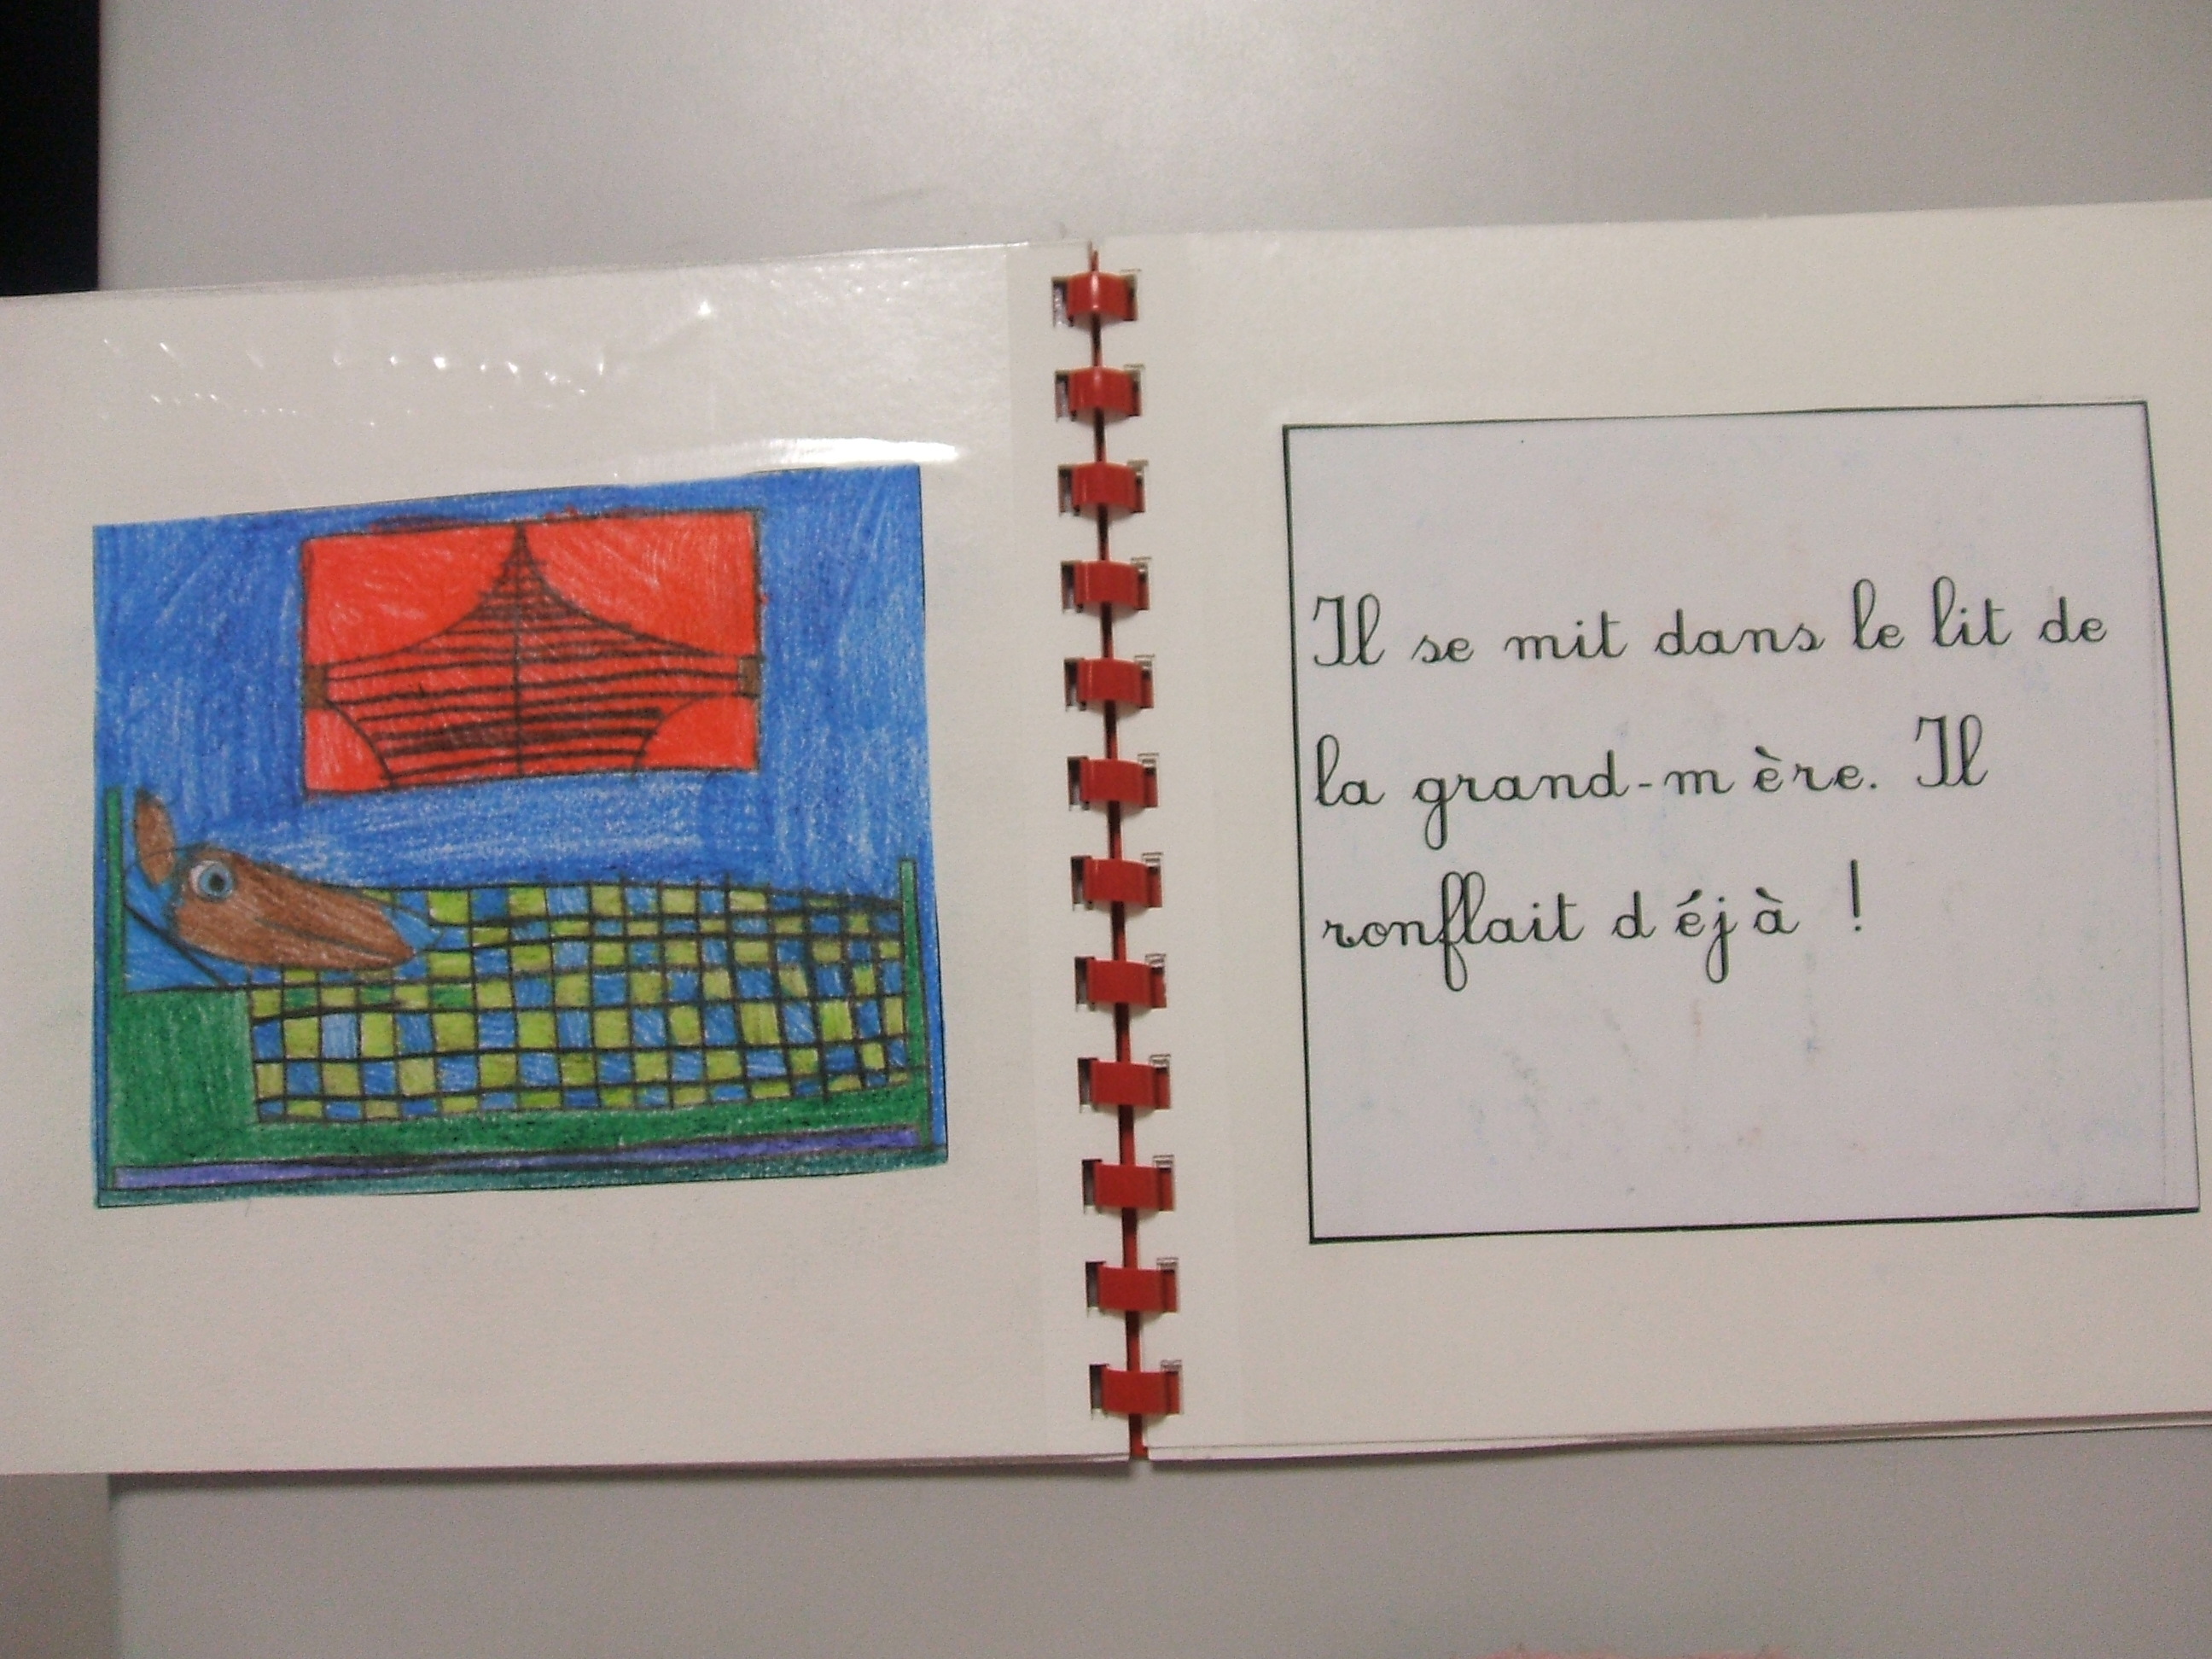 Il se mit dans le lit de
la grand-mère. Il
ronflait déjà !